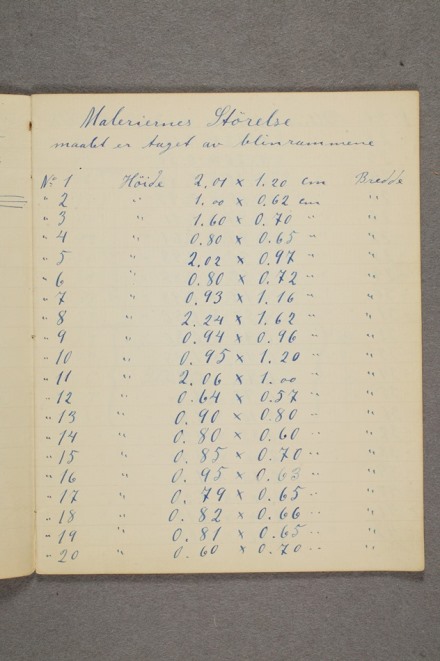 Maleriernes Störelse
maalet er taget av blinrammene
No 1 Höide 2.01 x 1.20 cm Bredde
" 2 " 1.00 x 0.62 cm "
" 3 " 1.60 x 0.70 " "
" 4 " 0.80 x 0.65 " "
" 5 " 2.02 x 0.97 " "
" 6 " 0.80 x 0.72 " "
" 7 " 0.93 x 1.16 " "
" 8 " 2.24 x 1.62 " "
" 9 " 0.94 x 0.96 " "
" 10 " 0.95 x 1.20 " "
" 11 " 2.06 x 1.00 " "
" 12 " 0.64 x 0.57 " "
" 13 " 0.90 x 0.80 " "
" 14 " 0.80 x 0.60 " "
" 15 " 0.85 x 0.70 " "
" 16 " 0.95 x 0.63 " "
" 17 " 0.79 x 0.65 " "
" 18 " 0.82 x 0.66 " "
" 19 " 0.81 x 0.65 " "
" 20 " 0.60 x 0.70 " "